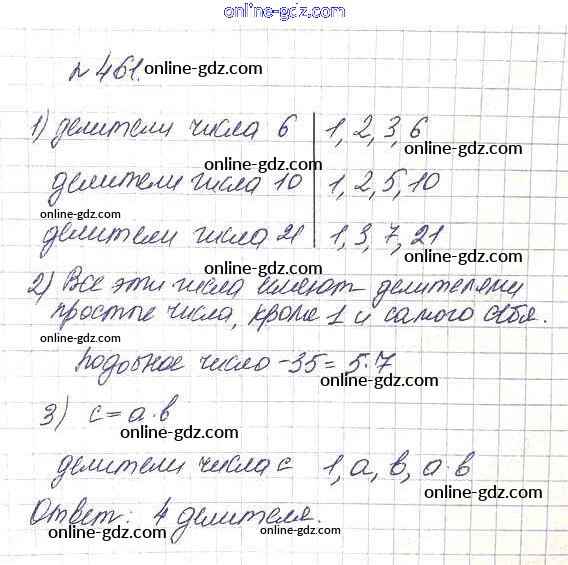 online-gdz.com
№461. online-gdz.com
1) делители числа 6 | 1, 2, 3, 6
online-gdz.com
делители числа 10 | 1, 2, 5, 10
online-gdz.com online-gdz.com
делители числа 21 | 1, 3, 7, 21
online-gdz.com
2) Все эти числа имеют делителями
online-gdz.com
простые числа, кроме 1 и самого себя.
online-gdz.com
Подобное число - 35 = 5·7
online-gdz.com
3) c = a·b
online-gdz.com
делители числа c 1, a, b, a·b
online-gdz.com online-gdz.com
Ответ: 4 делителя.
online-gdz.com